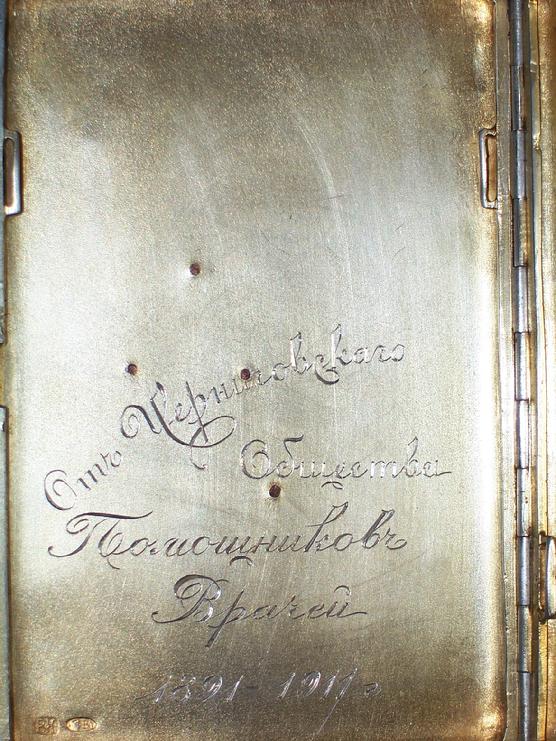 Отъ Черниговскаго
Общества
Помощниковъ
Врачей
1891-1911 г